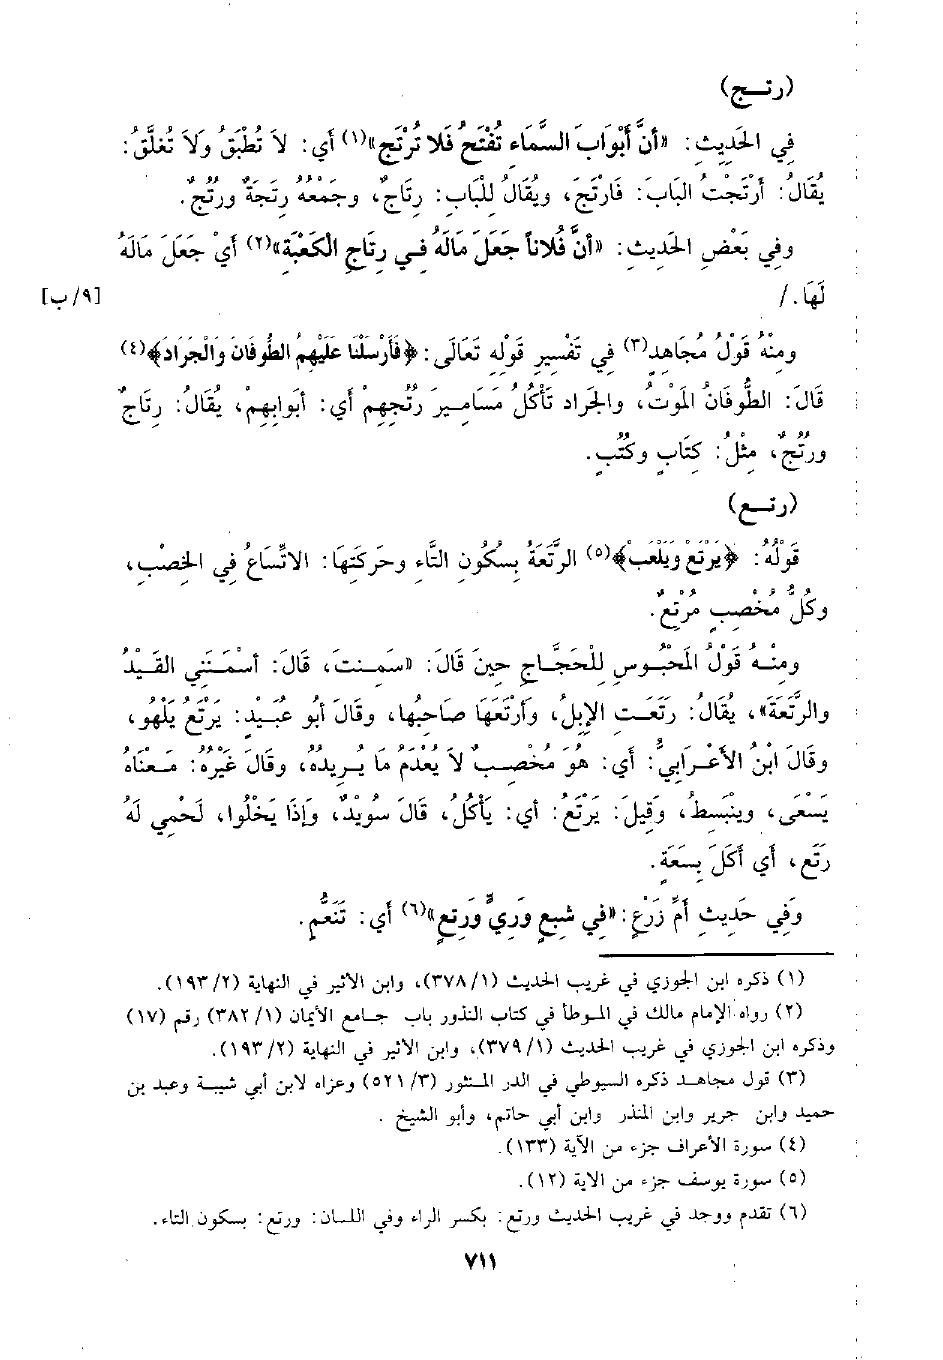 (رتـج)
فِي الحَدِيثِ: «أنَّ أَبْوَابَ السَّمَاءِ تُفْتَحُ فَلا تُرْتَج»(١) أي: لاَ تُطْبَقُ وَلاَ تُغلَّقُ:
يُقَالُ: أَرْتَجْتُ البَابَ: فَارْتَجَ، ويُقَالُ لِلْبَابِ: رِتَاجٌ، وجَمْعُهُ رِتَجَةٌ ورُتُجٌ.
وفِي بَعْضِ الحَدِيثِ: «أنَّ فُلاناً جَعَلَ مَالَهُ فِـي رِتَاجِ الكَعْبَةِ»(٢) أَيْ جَعَلَ مَالَهُ
لَهَا. /
[٩/ب]
ومِنْهُ قَوْلُ مُجَاهِدٍ(٣) فِي تَفْسِيرِ قَوْلِهِ تَعَالَى: ﴿فَأَرْسَلْنَا عَلَيْهِمُ الطُّوفَانَ وَالْجَرَادَ﴾(٤)
قَالَ: الطُّوفَانُ المَوْتُ، والجَراد تَأْكُلُ مَسَامِـيرَ رُتُجِهِمْ أي: أبْوابِهِمْ، يقَالُ: رِتَاجٌ
ورُتُجٌ، مِثْلُ: كِتَابٍ وكُتُبٍ.
(رتـع)
قَوْلُهُ: ﴿يَرْتَعْ وَيَلْعَبْ﴾(٥) الرَّتَعَةُ بِسُكُونِ التَّاءِ وحَرَكَتِهَا: الاتِّسَاعُ فِي الخِصْبِ،
وكُلُّ مُخْصِبٍ مُرْتِعٌ.
ومِنْـهُ قَوْلُ المَحْبُوسِ لِلْحَجَّـاجِ حِينَ قَالَ: «سَمِـنتَ، قَالَ: أسْمَنَنِي القَـيْدُ
والرَّتَعَةَ»، يُقَالُ: رَتَعَـتِ الإِبِلُ، وأَرْتَعَهَا صَاحِبُها، وقَالَ أبُو عُبَـيْدٍ: يَرْتَعُ يَلْهُو،
وقَالَ ابْنُ الأعْـرَابِيُّ: أي: هُوَ مُخْصِـبٌ لاَ يُعْدَمُ مَا يُـرِيدُه، وقَالَ غَيْرُهُ: مَـعْنَاهُ
يَسْعَى، وينْبَسِطُ، وَقِيلَ: يَرْتَعُ: أي: يَأْكُلُ، قَالَ سُويْدٌ، وَإذَا يَخْلُوا، لَحْمِي لَهُ
رَتَع، أَي أَكَلَ بِسَعَةٍ.
وَفِي حَدِيثِ أُمِّ زَرْعٍ: «فِي شِبَعٍ وَرِيٍّ وَرِتعٍ»(٦) أَي: تَنَعُّمٍ.
(١) ذكره ابن الجوزي في غريب الحديث (٣٧٨/١)، وابن الأثير في النهاية (١٩٣/٢).
(٢) رواه الإمام مالك في المـوطأ في كتاب النذور باب جـامع الأيمان (٣٨٢/١) رقم (١٧)
وذكره ابن الجوزي في غريب الحديث (٣٧٩/١)، وابن الاثير في النهاية (١٩٣/٢).
(٣) قول مجاهـد ذكره السيوطي في الدر المـنثور (٥٢١/٣) وعزاه لابن أبي شيبـة وعبـد بن
حميد وابن جرير وابن المنذر وابن أبي حاتم، وأبو الشيخ .
(٤) سورة الأعراف جزء من الآية (١٣٣).
(٥) سورة يوسف جزء من الاية (١٢).
(٦) تقدم ووجد في غريب الحديث ورتع: بكسر الراء وفي اللسان: ورتع: بسكون التاء.
٧١١